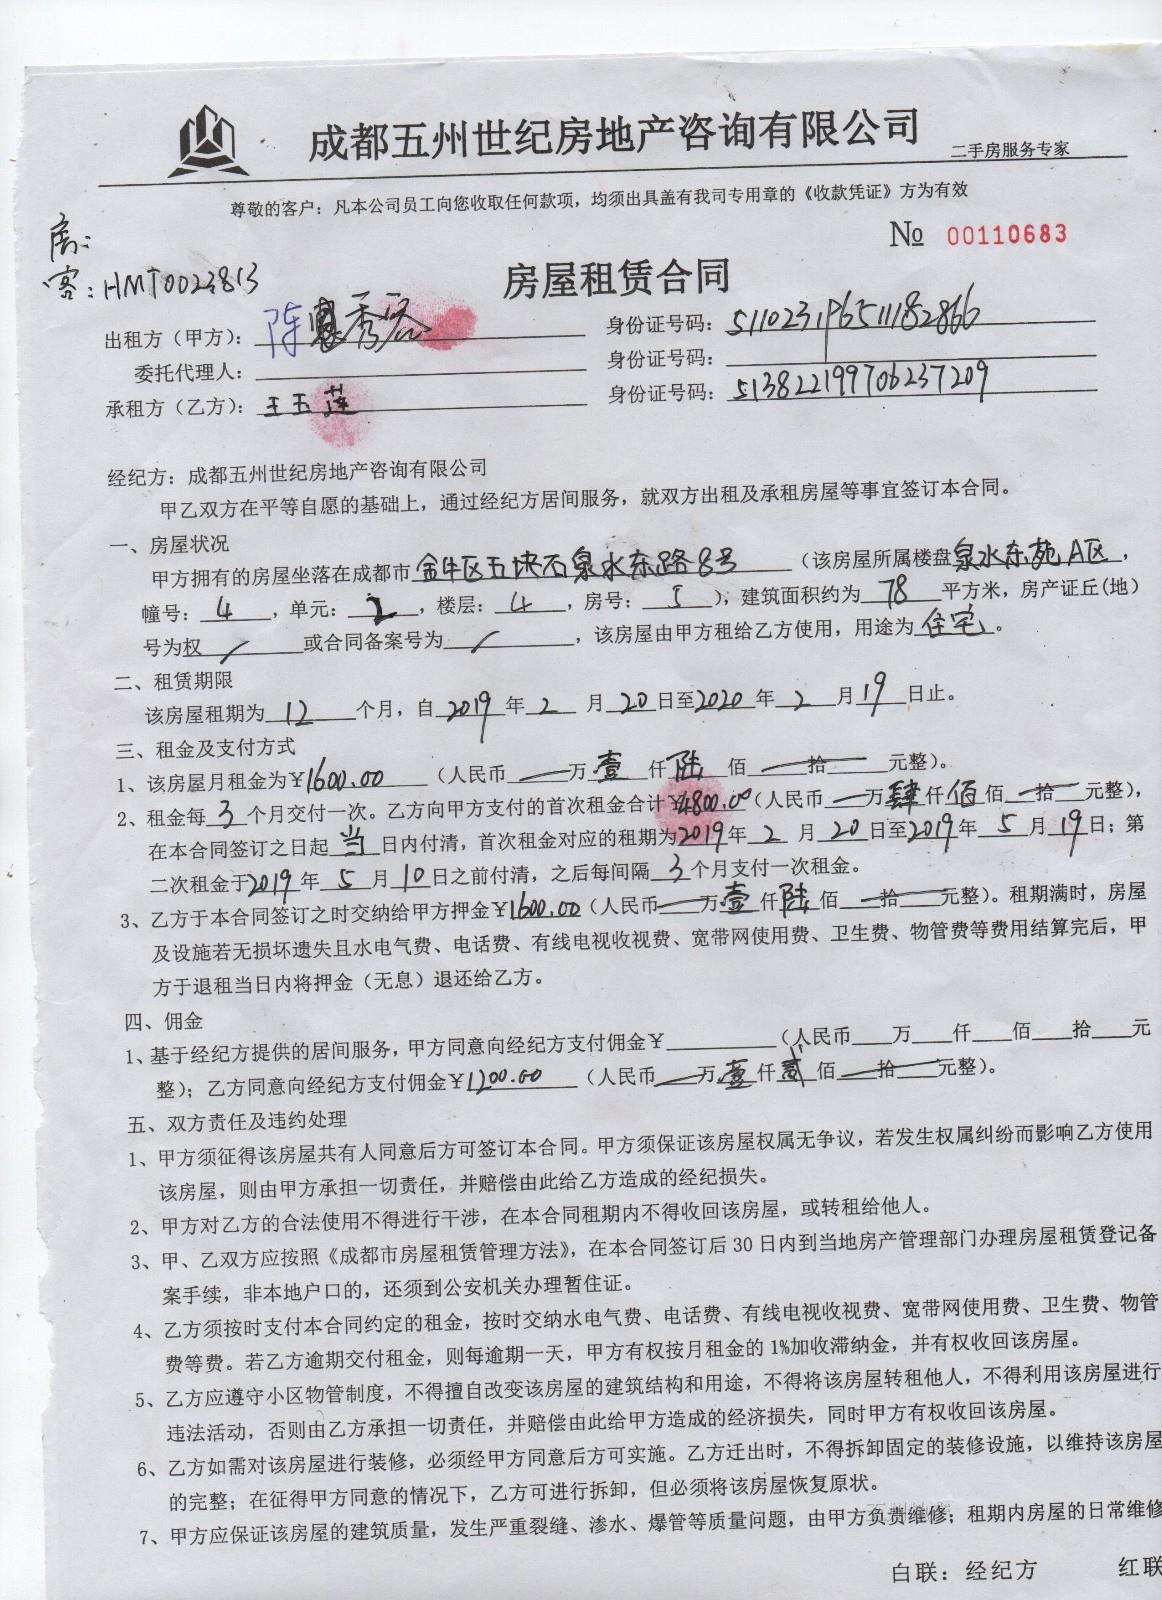 成都五州世纪房地产咨询有限公司 二手房服务专家
尊敬的客户：凡本公司员工向您收取任何款项，均须出具盖有我司专用章的《收款凭证》方为有效
房：
№ 00110683
客：HMT0023813
房屋租赁合同
出租方（甲方）：陈 秀 身份证号码：511023196511182866
委托代理人： 身份证号码：
承租方（乙方）：王玉莲 身份证号码：513822199706237209
经纪方：成都五州世纪房地产咨询有限公司
甲乙双方在平等自愿的基础上，通过经纪方居间服务，就双方出租及承租房屋等事宜签订本合同。
一、房屋状况
甲方拥有的房屋坐落在成都市金牛区五块石泉水东路8号（该房屋所属楼盘泉水东苑A区，
幢号：4，单元：2，楼层：4，房号：5），建筑面积约为78平方米，房产证丘(地)
号为权 / 或合同备案号为 / ，该房屋由甲方租给乙方使用，用途为住宅。
二、租赁期限
该房屋租期为12个月，自2019年2月20日至2020年2月19日止。
三、租金及支付方式
1、该房屋月租金为￥1600.00（人民币 万壹仟陆佰 拾 元整）。
2、租金每3个月交付一次。乙方向甲方支付的首次租金合计￥4800.00（人民币 万肆仟佰佰 拾 元整），
在本合同签订之日起当日内付清，首次租金对应的租期为2019年2月20日至2019年5月19日；第
二次租金于2019年5月10日之前付清，之后每间隔3个月支付一次租金。
3、乙方于本合同签订之时交纳给甲方押金￥1600.00（人民币 万壹仟陆佰 拾 元整）。租期满时，房屋
及设施若无损坏遗失且水电气费、电话费、有线电视收视费、宽带网使用费、卫生费、物管费等费用结算完后，甲
方于退租当日内将押金（无息）退还给乙方。
四、佣金
1、基于经纪方提供的居间服务，甲方同意向经纪方支付佣金￥ （人民币 万 仟 佰 拾 元
整）；乙方同意向经纪方支付佣金￥1200.00（人民币 万壹仟贰佰 拾 元整）。
五、双方责任及违约处理
1、甲方须征得该房屋共有人同意后方可签订本合同。甲方须保证该房屋权属无争议，若发生权属纠纷而影响乙方使用
该房屋，则由甲方承担一切责任，并赔偿由此给乙方造成的经纪损失。
2、甲方对乙方的合法使用不得进行干涉，在本合同租期内不得收回该房屋，或转租给他人。
3、甲、乙双方应按照《成都市房屋租赁管理方法》，在本合同签订后30日内到当地房产管理部门办理房屋租赁登记备
案手续，非本地户口的，还须到公安机关办理暂住证。
4、乙方须按时支付本合同约定的租金，按时交纳水电气费、电话费、有线电视收视费、宽带网使用费、卫生费、物管
费等费。若乙方逾期交付租金，则每逾期一天，甲方有权按月租金的1%加收滞纳金，并有权收回该房屋。
5、乙方应遵守小区物管制度，不得擅自改变该房屋的建筑结构和用途，不得将该房屋转租他人，不得利用该房屋进行
违法活动，否则由乙方承担一切责任，并赔偿由此给甲方造成的经济损失，同时甲方有权收回该房屋。
6、乙方如需对该房屋进行装修，必须经甲方同意后方可实施。乙方迁出时，不得拆卸固定的装修设施，以维持该房屋
的完整；在征得甲方同意的情况下，乙方可进行拆卸，但必须将该房屋恢复原状。
7、甲方应保证该房屋的建筑质量，发生严重裂缝、渗水、爆管等质量问题，由甲方负责维修；租期内房屋的日常维修
白联：经纪方 红联